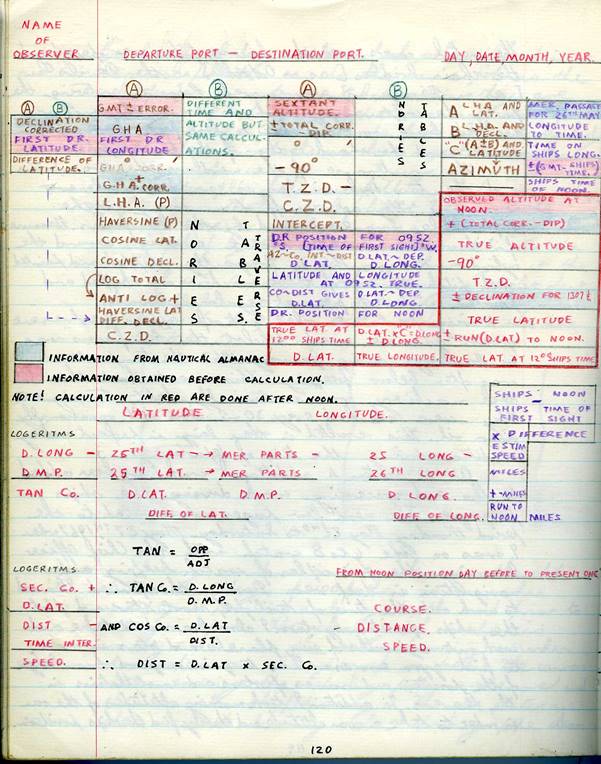 NAME
OF
OBSERVER
DEPARTURE PORT – DESTINATION PORT.
DAY, DATE, MONTH, YEAR.
A B
DECLINATION
CORRECTED
FIRST DR.
LATITUDE.
DIFFERENCE OF
LATITUDE.
A
GMT ± ERROR.
GHA
FIRST DR
LONGITUDE
GHA CORR.
+
G.H.A. CORR.
L.H.A. (P)
HAVERSINE (P)
COSINE LAT.
COSINE DECL.
LOG TOTAL
ANTI LOG +
HAVERSINE LAT
DIFF. DECL.
C.Z.D.
B
DIFFERENT
TIME AND
ALTITUDE BUT
SAME CALCUL-
ATIONS.
NORIES
TABLES
TRAVERSE
A
SEXTANT
ALTITUDE.
± TOTAL CORR.
- DIP
° '
– 90°
T.Z.D. –
C.Z.D.
INTERCEPT.
B
NORIES
TABLES
D.R POSITION FOR 0952.
°S (TIME OF FIRST SIGHT) °W.
AZ ~ CO, INT. ~ DIST D.LAT ~ DEP.
D.LAT. D.LONG.
LATITUDE AND LONGITUDE
AT 0952. TRUE.
CO ~ DIST GIVES D.LAT ~ DEP.
D.LAT. D.LONG
DR. POSITION FOR NOON
TRUE LAT AT
1200 SHIPS TIME
D.LAT x "C" = D.LONG
± D.LONG.
D.LAT. TRUE LONGITUDE.
A L.H.A AND
LAT.
B L.H.A. AND
DECL.
"C" (A±B) AND
LATITUDE
AZIMUTH
MER. PASSAGE
FOR 26TH MAY
LONGITUDE
TO TIME.
TIME ON
SHIPS LONG.
± (GMT~SHIPS)
TIME.
SHIPS TIME
OF NOON.
OBSERVED ALTITUDE AT
NOON.
+ (TOTAL CORR. – DIP)
TRUE ALTITUDE
– 90°
T.Z.D.
± DECLINATION FOR 1307½
TRUE LATITUDE
± RUN (D.LAT) TO NOON.
TRUE LAT AT 12⁰⁰ SHIPS TIME
INFORMATION FROM NAUTICAL ALMANAC
INFORMATION OBTAINED BEFORE CALCULATION.
NOTE! CALCULATION IN RED ARE DONE AFTER NOON.
SHIPS NOON
SHIPS TIME OF
FIRST SIGHT
X DIFFERENCE
ESTIM
SPEED
MILES
+ MILES
RUN TO
NOON MILES
LATITUDE LONGITUDE.
LOGERITMS
D. LONG – 25TH LAT → MER PARTS – 25 LONG –
D.M.P. 25TH LAT. → MER PARTS 26TH LONG
TAN Co. D.LAT. D.M.P. D LONG.
DIFF OF LAT. DIFF OF LONG.
TAN = OPP
ADJ
LOGERITMS
FROM NOON POSITION DAY BEFORE TO PRESENT ONE
SEC. Co. + ∴ TAN Co. = D. LONG
D. M. P.
D.LAT.
COURSE.
DIST – AND COS Co. = D.LAT
DIST.
– DISTANCE.
TIME INTER.
SPEED.
SPEED. ∴ DIST = D.LAT x SEC. Co.
120